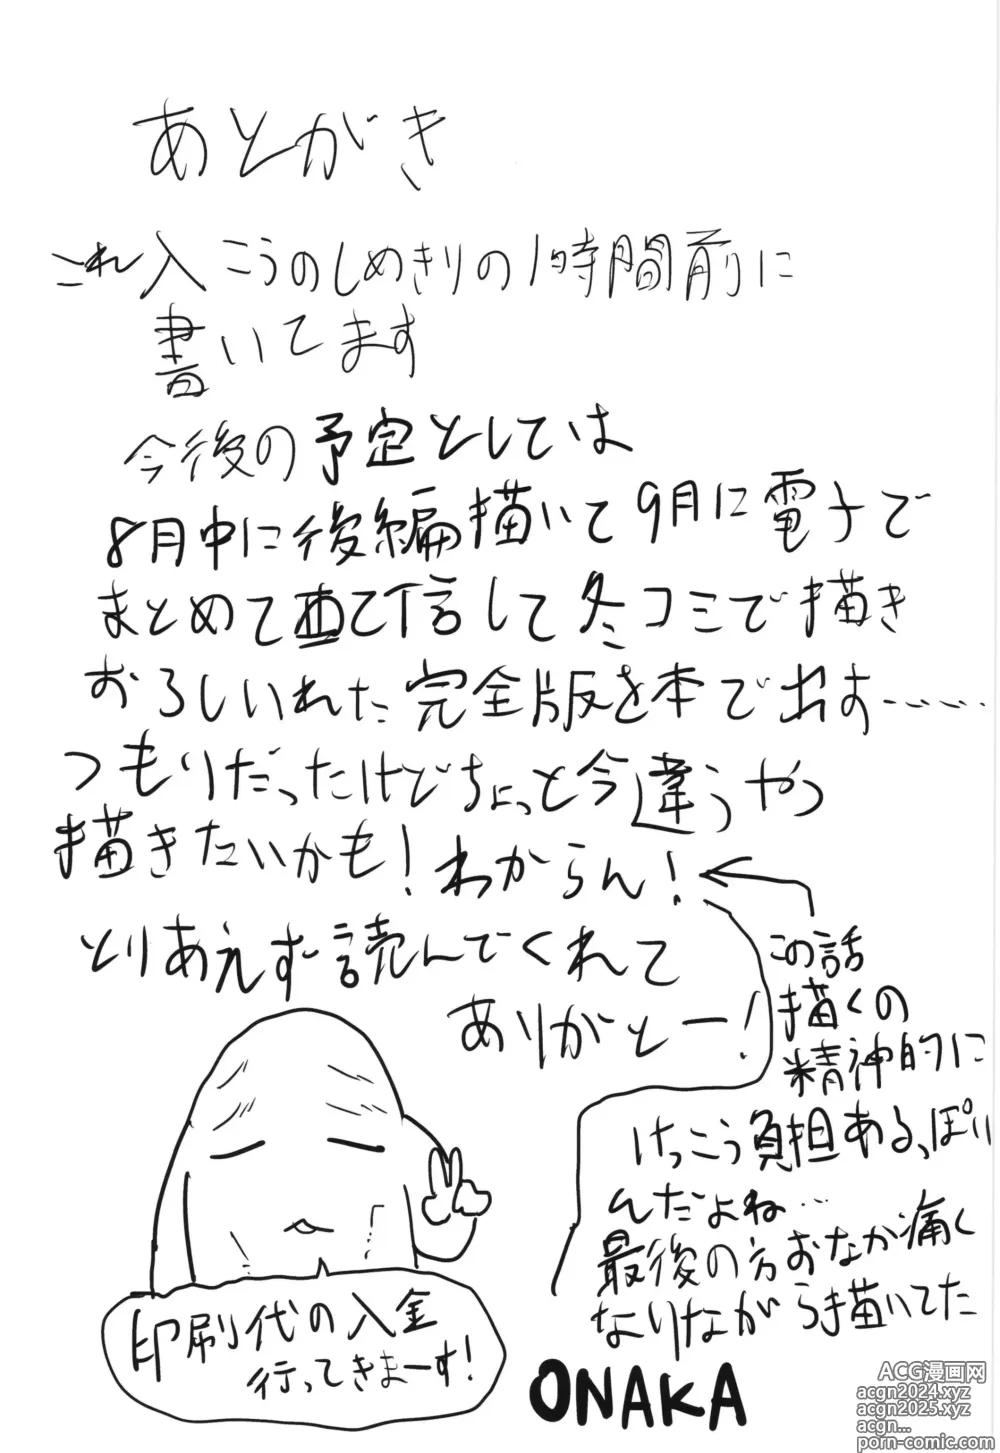 あとがき
これ入こうのしめきりの1時間前に
書いてます
今後の予定としては
8月中に後編描いて9月に電子で
まとめて配信して冬コミで描き
おろしいれた完全版を本で出す……
つもりだったけどちょっと今違うやつ
描きたいかも!わからん!
とりあえず読んでくれて
ありがとー!
この話
描くの
精神的に
けっこう負担ある、ぽい
んだよね…
最後の方おなか痛く
なりながら描いてた
印刷代の入金
行ってきまーす!
ONAKA
ACG漫画网
acgn2024.xyz
acgn2025.xyz
acgn...
porn-comic.com